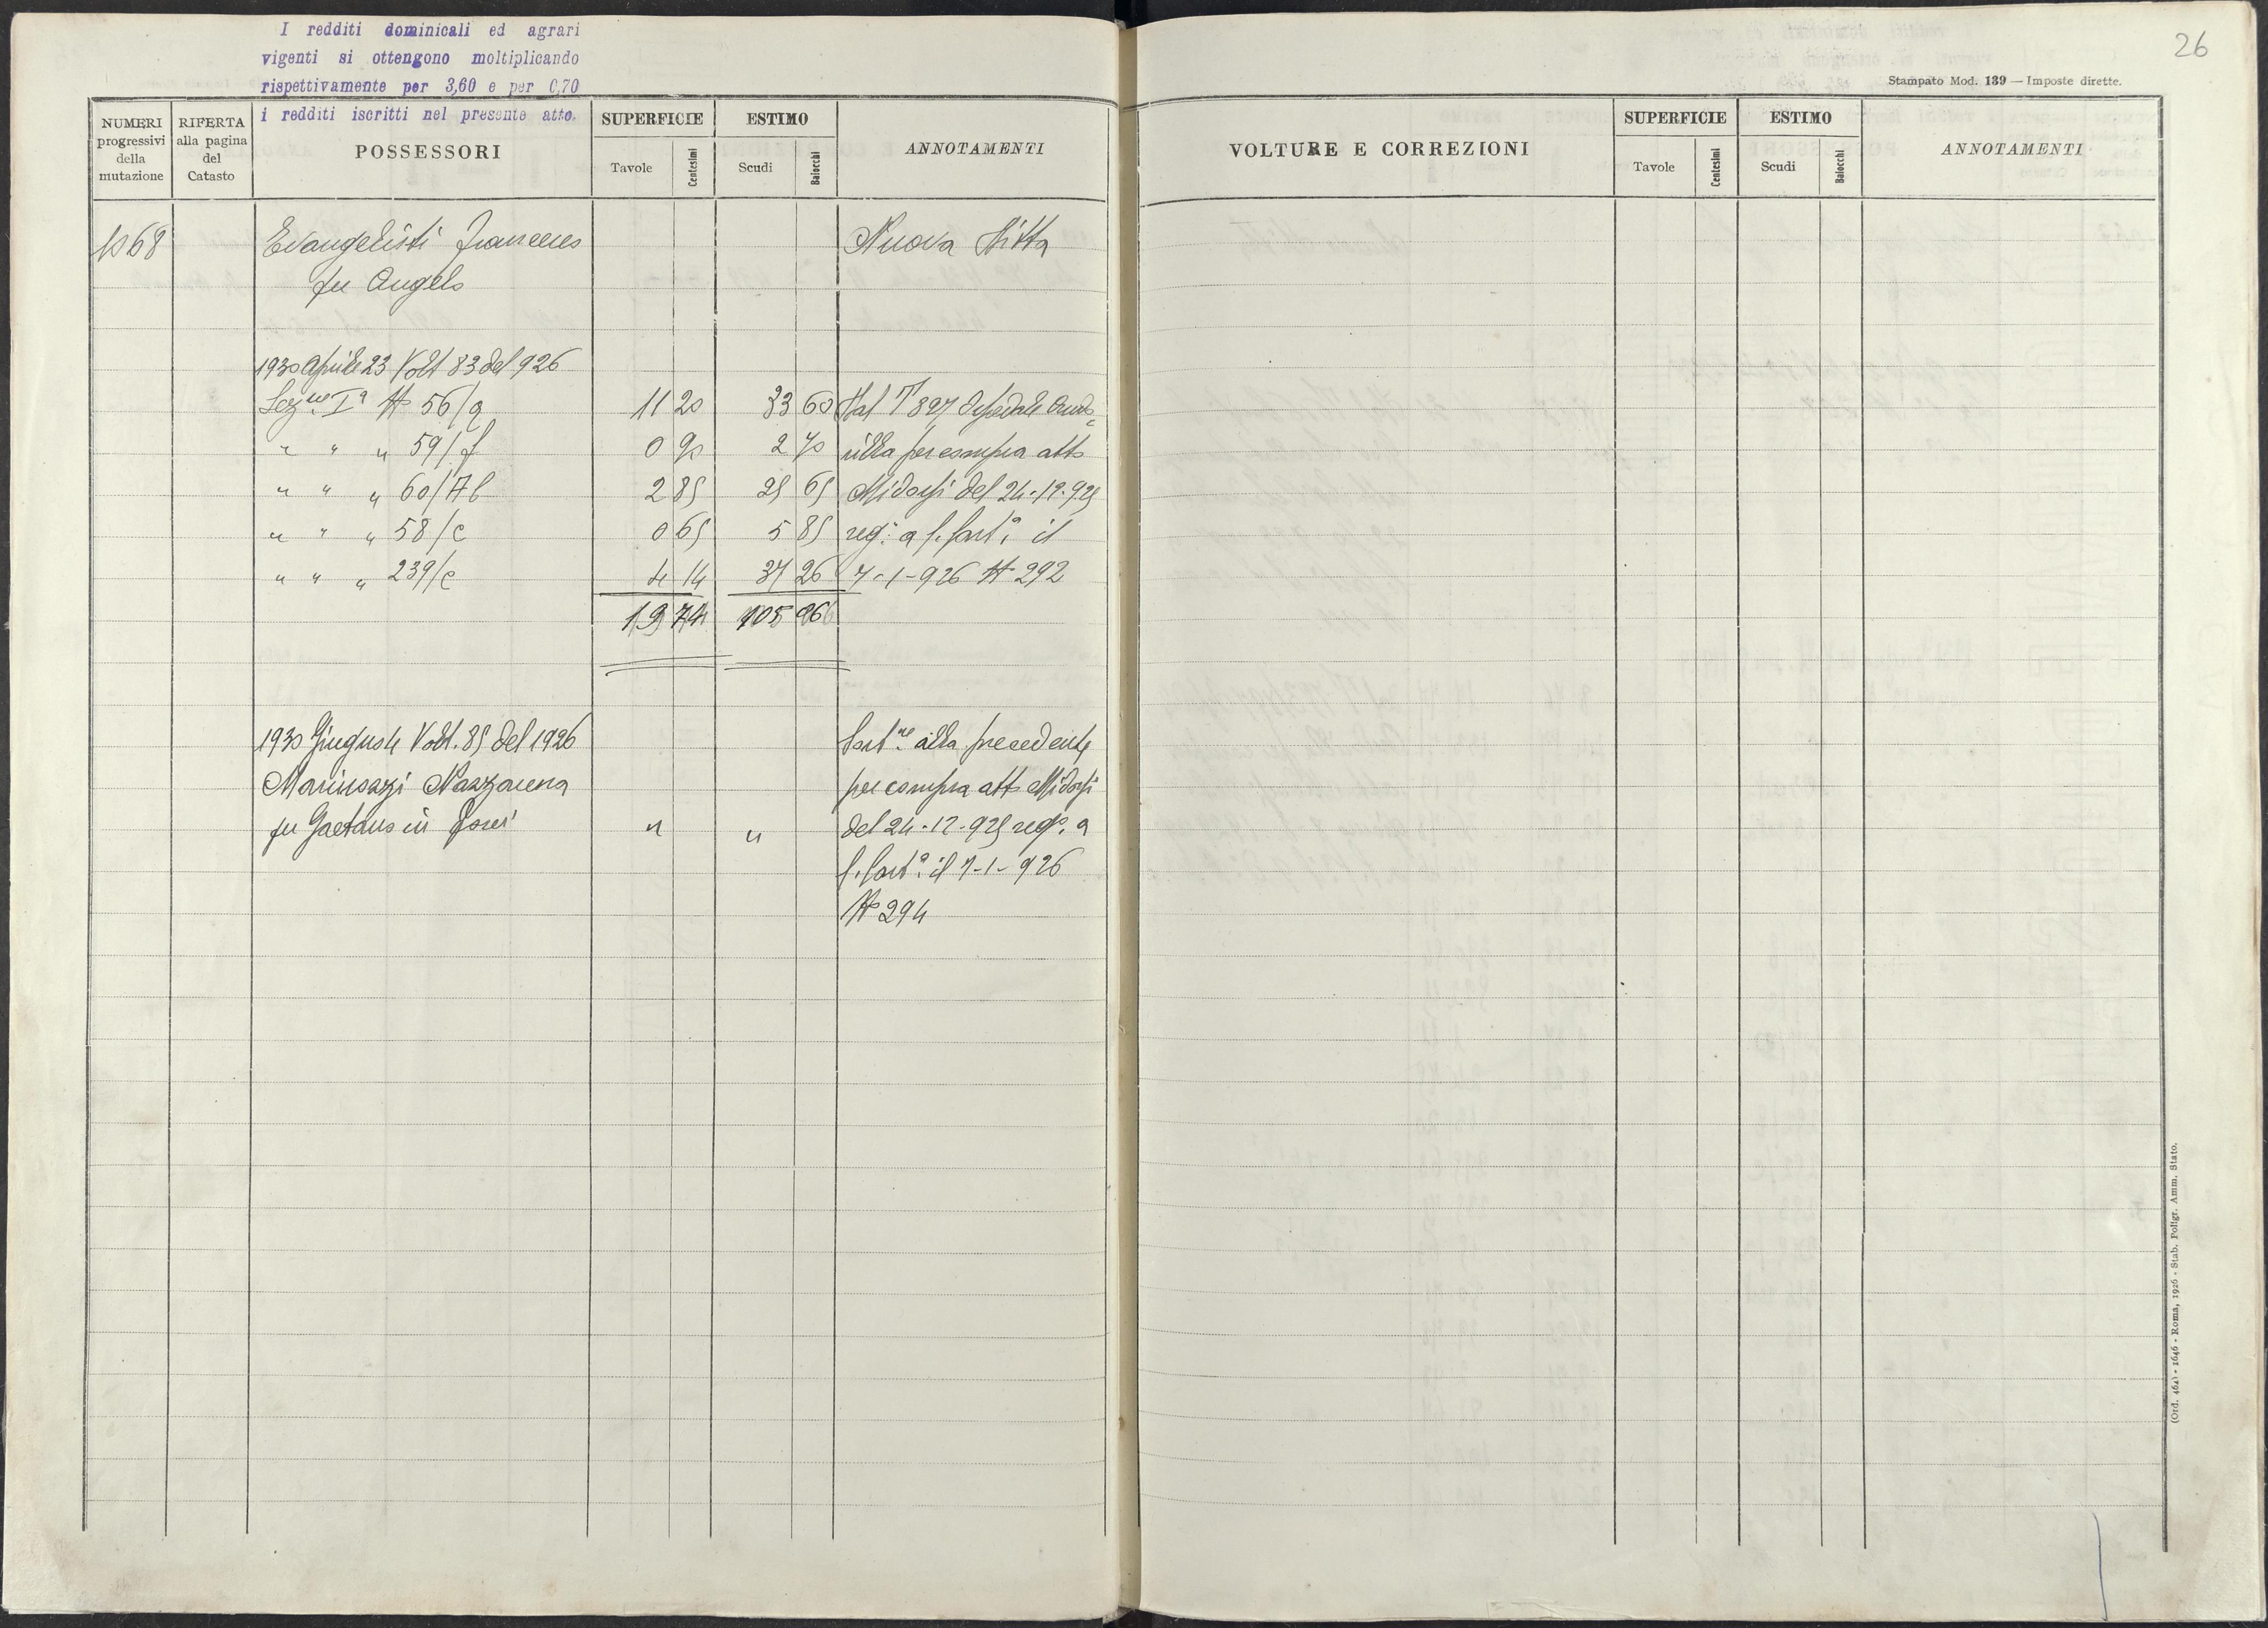 I redditi dominicali ed agrari
vigenti si ottengono moltiplicando
rispettivamente per 3,60 e per 0,70
i redditi iscritti nel presente atto.
26
Stampato Mod. 139 — Imposte dirette.
NUMERI progressivi della mutazione
RIFERTA alla pagina del Catasto
POSSESSORI
SUPERFICIE
Tavole
Centesimi
ESTIMO
Scudi
Baiocchi
ANNOTAMENTI
VOLTURE E CORREZIONI
SUPERFICIE
Tavole
Centesimi
ESTIMO
Scudi
Baiocchi
ANNOTAMENTI
1068 Evangelisti Francesco Nuova Ditta
fu Angelo
1930 Aprile 23 Volt 83 del 926
Sezne Ia N 56/a 11 20 33 60 Dal T 827
" " " 59/f 0 90 2 70 per compra atto
" " " 60/Ab 2 85 25 65 Midossi del 24-12-925
" " " 58/c 0 65 5 85 reg: a il
" " " 239/c 4 14 37 26 7-1-926 N 292
19 74 105 06
1930 Giugno 4 Volt. 85 del 1926 alla precedente
Marinozzi Nazzarena per compra atto Midossi
fu Gaetano in " " del 24-12-925 rego. a
il 7-1-926
No 294
(Ord. 464) - 1646 - Roma, 1926 - Stab. Poligr. Amm. Stato.